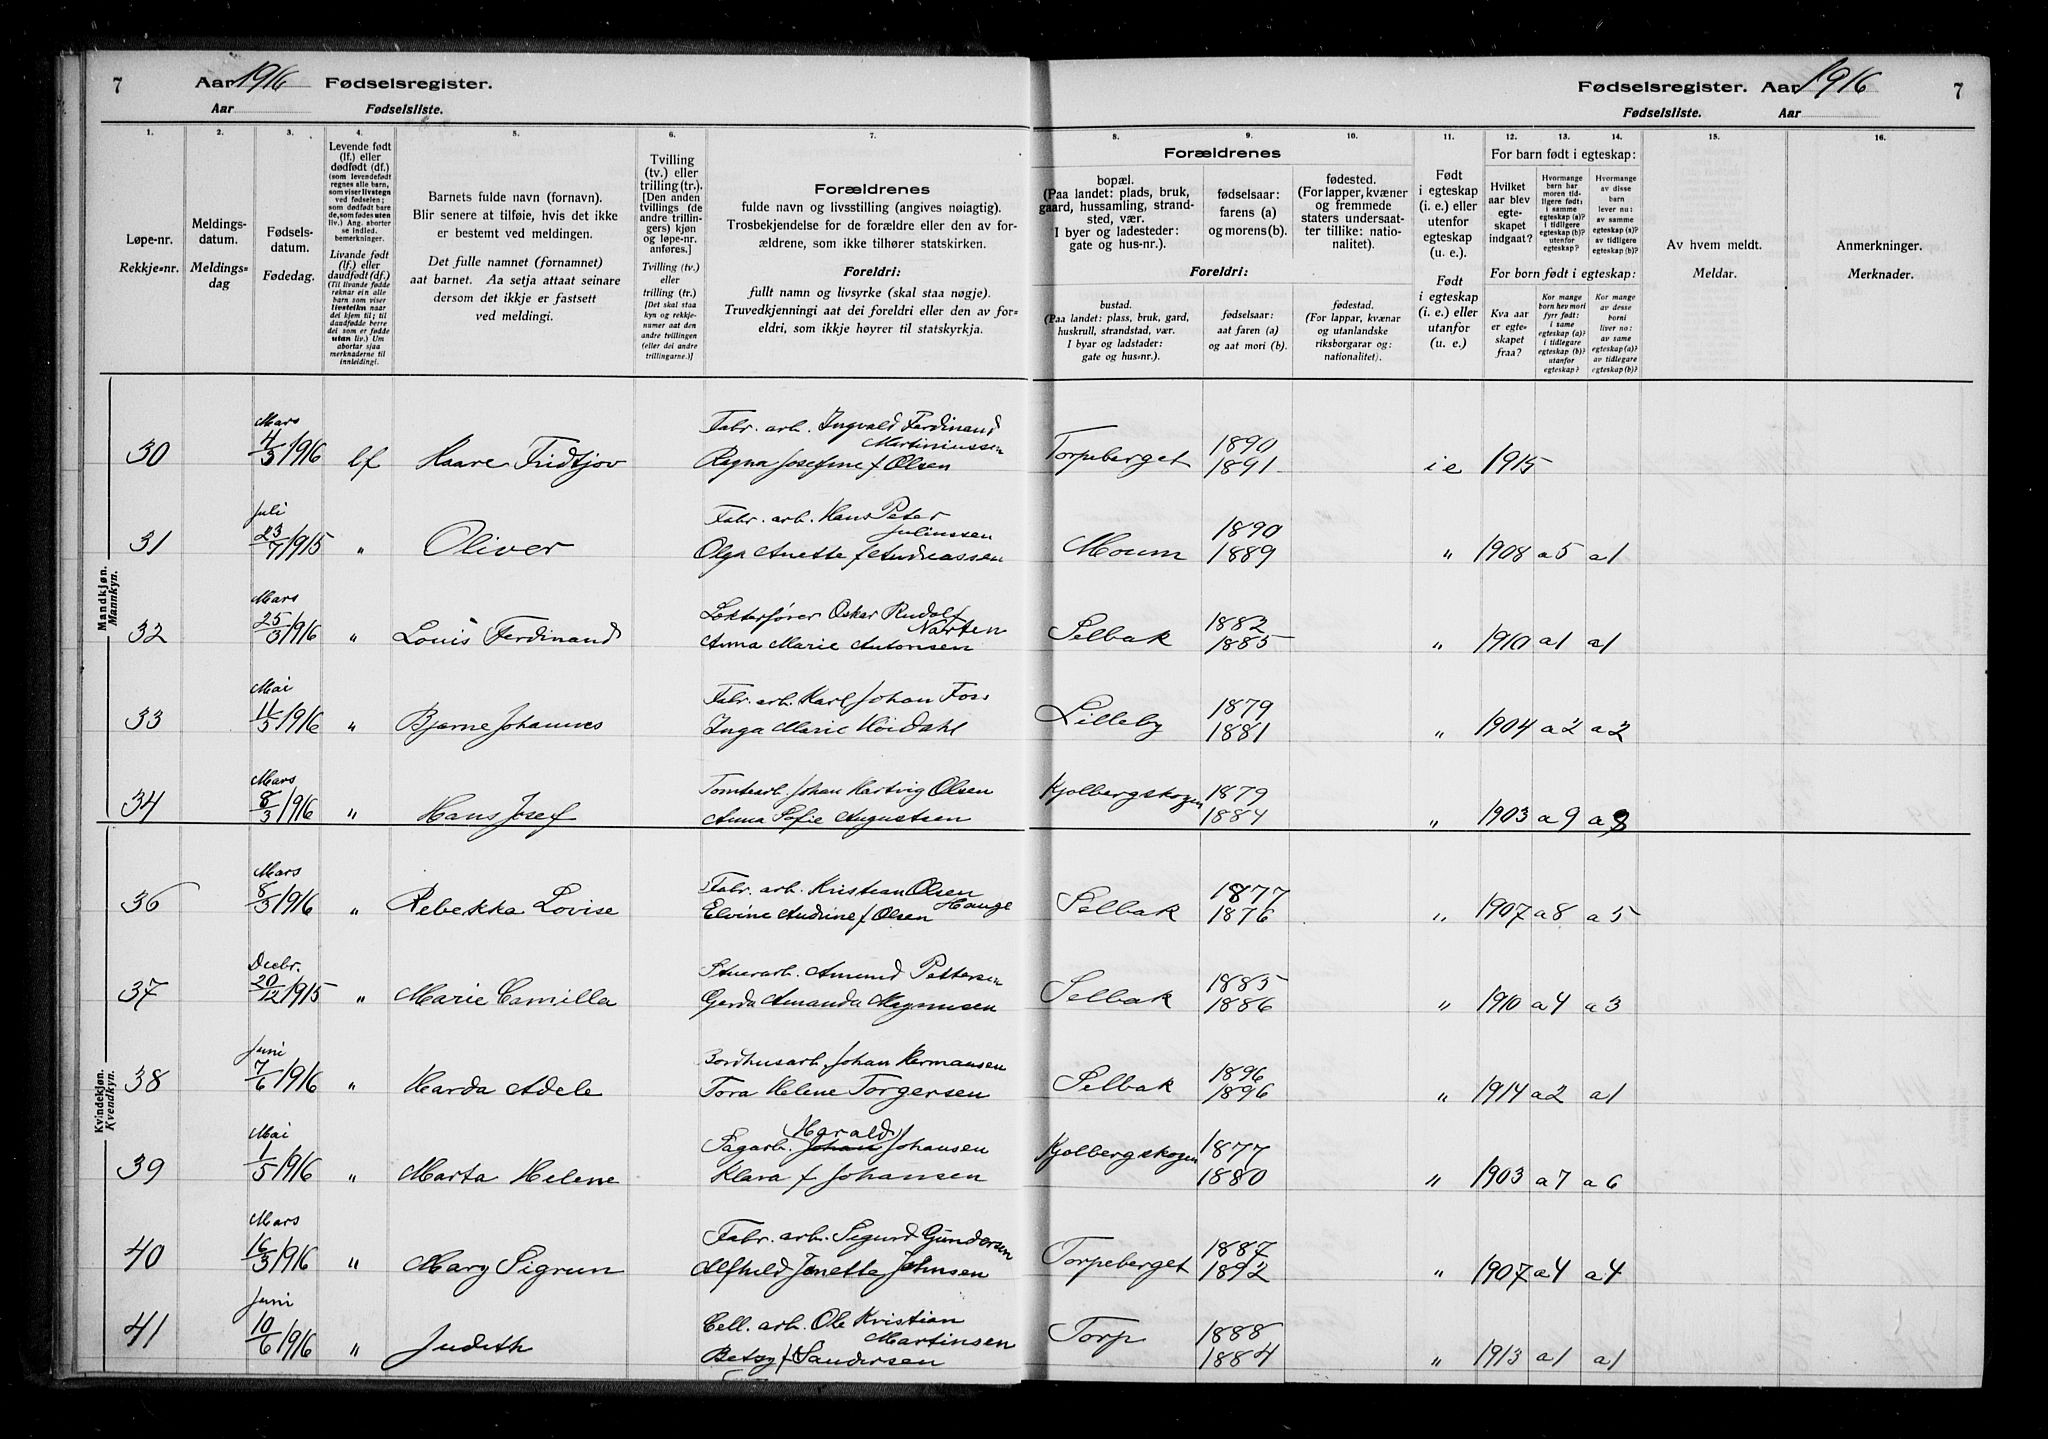 7 Aar 1916 Fødselsregister.
Aar Fødselsliste.
Fødselsregister. Aar 1916 7
Fødselsliste. Aar
1. 2. 3. 4. 5. 6. 7. 8. 9. 10. 11. 12. 13. 14. 15. 16.
Løpe-nr.
Rekkje-nr.
Meldings-
datum.
Meldings-
dag
Fødsels-
datum.
Fødedag.
Levende født
(lf.) eller
dødfødt (df.)
(som levendefødt
regnes alle barn,
som viser livstegn
ved fødselen;
som dødfødt bare
de, som fødes uten
liv.) Ang. aborter
se indled.
bemerkninger.
Livande født
(lf.) eller
daudfødt (df.)
(Til livande fødde
reknar ein alle
born som viser
livsteikn naar
dei kjem til; til
daudfødde berre
dei som er fødde
utan liv.) Um
abortar sjaa
merknaderne til
innleidingi.
Barnets fulde navn (fornavn).
Blir senere at tilføie, hvis det ikke
er bestemt ved meldingen.
Det fulle namnet (fornamnet)
aat barnet. Aa setja attaat seinare
dersom det ikkje er fastsett
ved meldingi.
Tvilling
(tv.) eller
trilling (tr.)
[Den anden
tvillings (de
andre trillin-
gers) kjøn
og løpe-nr.
anføres.]
Tvilling (tv.)
eller
trilling (tr.)
[Det skal staa
kyn og rekkje-
numer aat den
andre tvillingen
(eller dei andre
trillingarne.)]
Forældrenes
fulde navn og livsstilling (angives nøiagtig).
Trosbekjendelse for de forældre eller den av for-
ældrene, som ikke tilhører statskirken.
Foreldri:
fullt namn og livsyrke (skal staa nøgje).
Truvedkjenningi aat dei foreldri eller den av for-
eldri, som ikkje høyrer til statskyrkja.
Forældrenes
bopæl.
(Paa landet: plads, bruk,
gaard, hussamling, strand-
sted, vær.
I byer og ladesteder:
gate og hus-nr.).
fødselsaar:
farens (a)
og morens (b).
fødested.
(For lapper, kvæner
og fremmede
staters undersaat-
ter tillike: natio-
nalitet).
Foreldri:
bustad.
(Paa landet: plass, bruk, gard,
huskrull, strandstad, vær.
I byar og ladstader:
gate og hus-nr.).
fødselsaar:
aat faren (a)
og aat mori (b).
fødestad.
(For lappar, kvænar
og utanlandske
riksborgarar og:
nationalitet).
Født
i egteskap
(i. e.) eller
utenfor
egteskap
(u. e.).
Født
i egteskap
(i. e.) eller
utanfor
(u. e.)
For barn født i egteskap:
Hvilket
aar blev
egte-
skapet
indgaat?
Hvormange
barn har
moren tid-
ligere født:
i samme
egteskap (a)?
i tidligere
egteskap (b)?
utenfor
egteskap?
Hvormange
av disse
barn
lever nu:
av samme
egteskap (a)?
av tidligere
egteskap (b)?
For born født i egteskap:
Kva aar
er egte-
skapet
fraa?
Kor mange
born hev mori
fyrr født:
i same
egteskap (a)?
i tidlegare
egteskap (b)?
utanfor
egteskap?
Kor mange
av desse
borni
liver no:
av same
egteskap (a)?
av tidlegare
egteskap (b)?
Av hvem meldt.
Meldar.
Anmerkninger.
Merknader.
Mandkjøn.
Mannkyn.
30 Mars 4/3 1916 lf Kaare Fridtjov Fabr. arb. Ingvald Ferdinand Martiniussen Torpeberget 1890
Ragna Josefine f Olsen 1891 i e 1915
31 Juli 23/7 1915 " Oliver Fabr. arb. Hans Peter Juliussen Moum 1890
Olga Anette f Andreassen 1889 " 1908 a 5 a 1
32 Mars 25/3 1916 " Louis Ferdinand Lekterfører Oskar Rudolf Narten Selbak 1882
Anna Marie Antonsen 1885 " 1910 a 1 a 1
33 Mai 11/5 1916 " Bjarne Johannes Fabr. arb. Karl Johan Foss Lilleby 1879
Inga Marie Höidahl 1881 " 1904 a 2 a 2
34 Mars 8/3 1916 " Hans Josef Tomtearb. Johan Hartvig Olsen Kjølbergskogen 1879
Anna Sofie Augustsen 1884 " 1903 a 9 a 8
Kvindekjøn.
Kvendkyn.
36 Mars 8/3 1916 " Rebekka Lovise Fabr. arb. Kristian Olsen Hauge Selbak 1877
Elvine Andrine f Olsen 1876 " 1907 a 8 a 5
37 Decbr. 20/12 1915 " Marie Camilla Stuerarb. Amund Pettersen Selbak 1885
Gerda Amanda Magnusen 1886 " 1910 a 4 a 3
38 Juni 7/6 1916 " Harda Adele Bordhusarb. Johan Hermansen Selbak 1896
Tora Helene Torgersen 1896 " 1914 a 2 a 1
39 Mai 1/5 1916 " Marta Helene Sagarb. Johan Harald Johansen Kjølbergskogen 1877
Klara f Johansen 1880 " 1903 a 7 a 6
40 Mars 16/3 1916 " Mary Sigrun Fabr. arb. Sigurd Gundersen Torpeberget 1887
Alfhild Jenette Johnsen 1892 " 1907 a 4 a 4
41 Juni 10/6 1916 " Judith Cell. arb. Ole Kristian Martinsen Torp 1888
Betsy f Sandersen 1884 " 1913 a 1 a 1